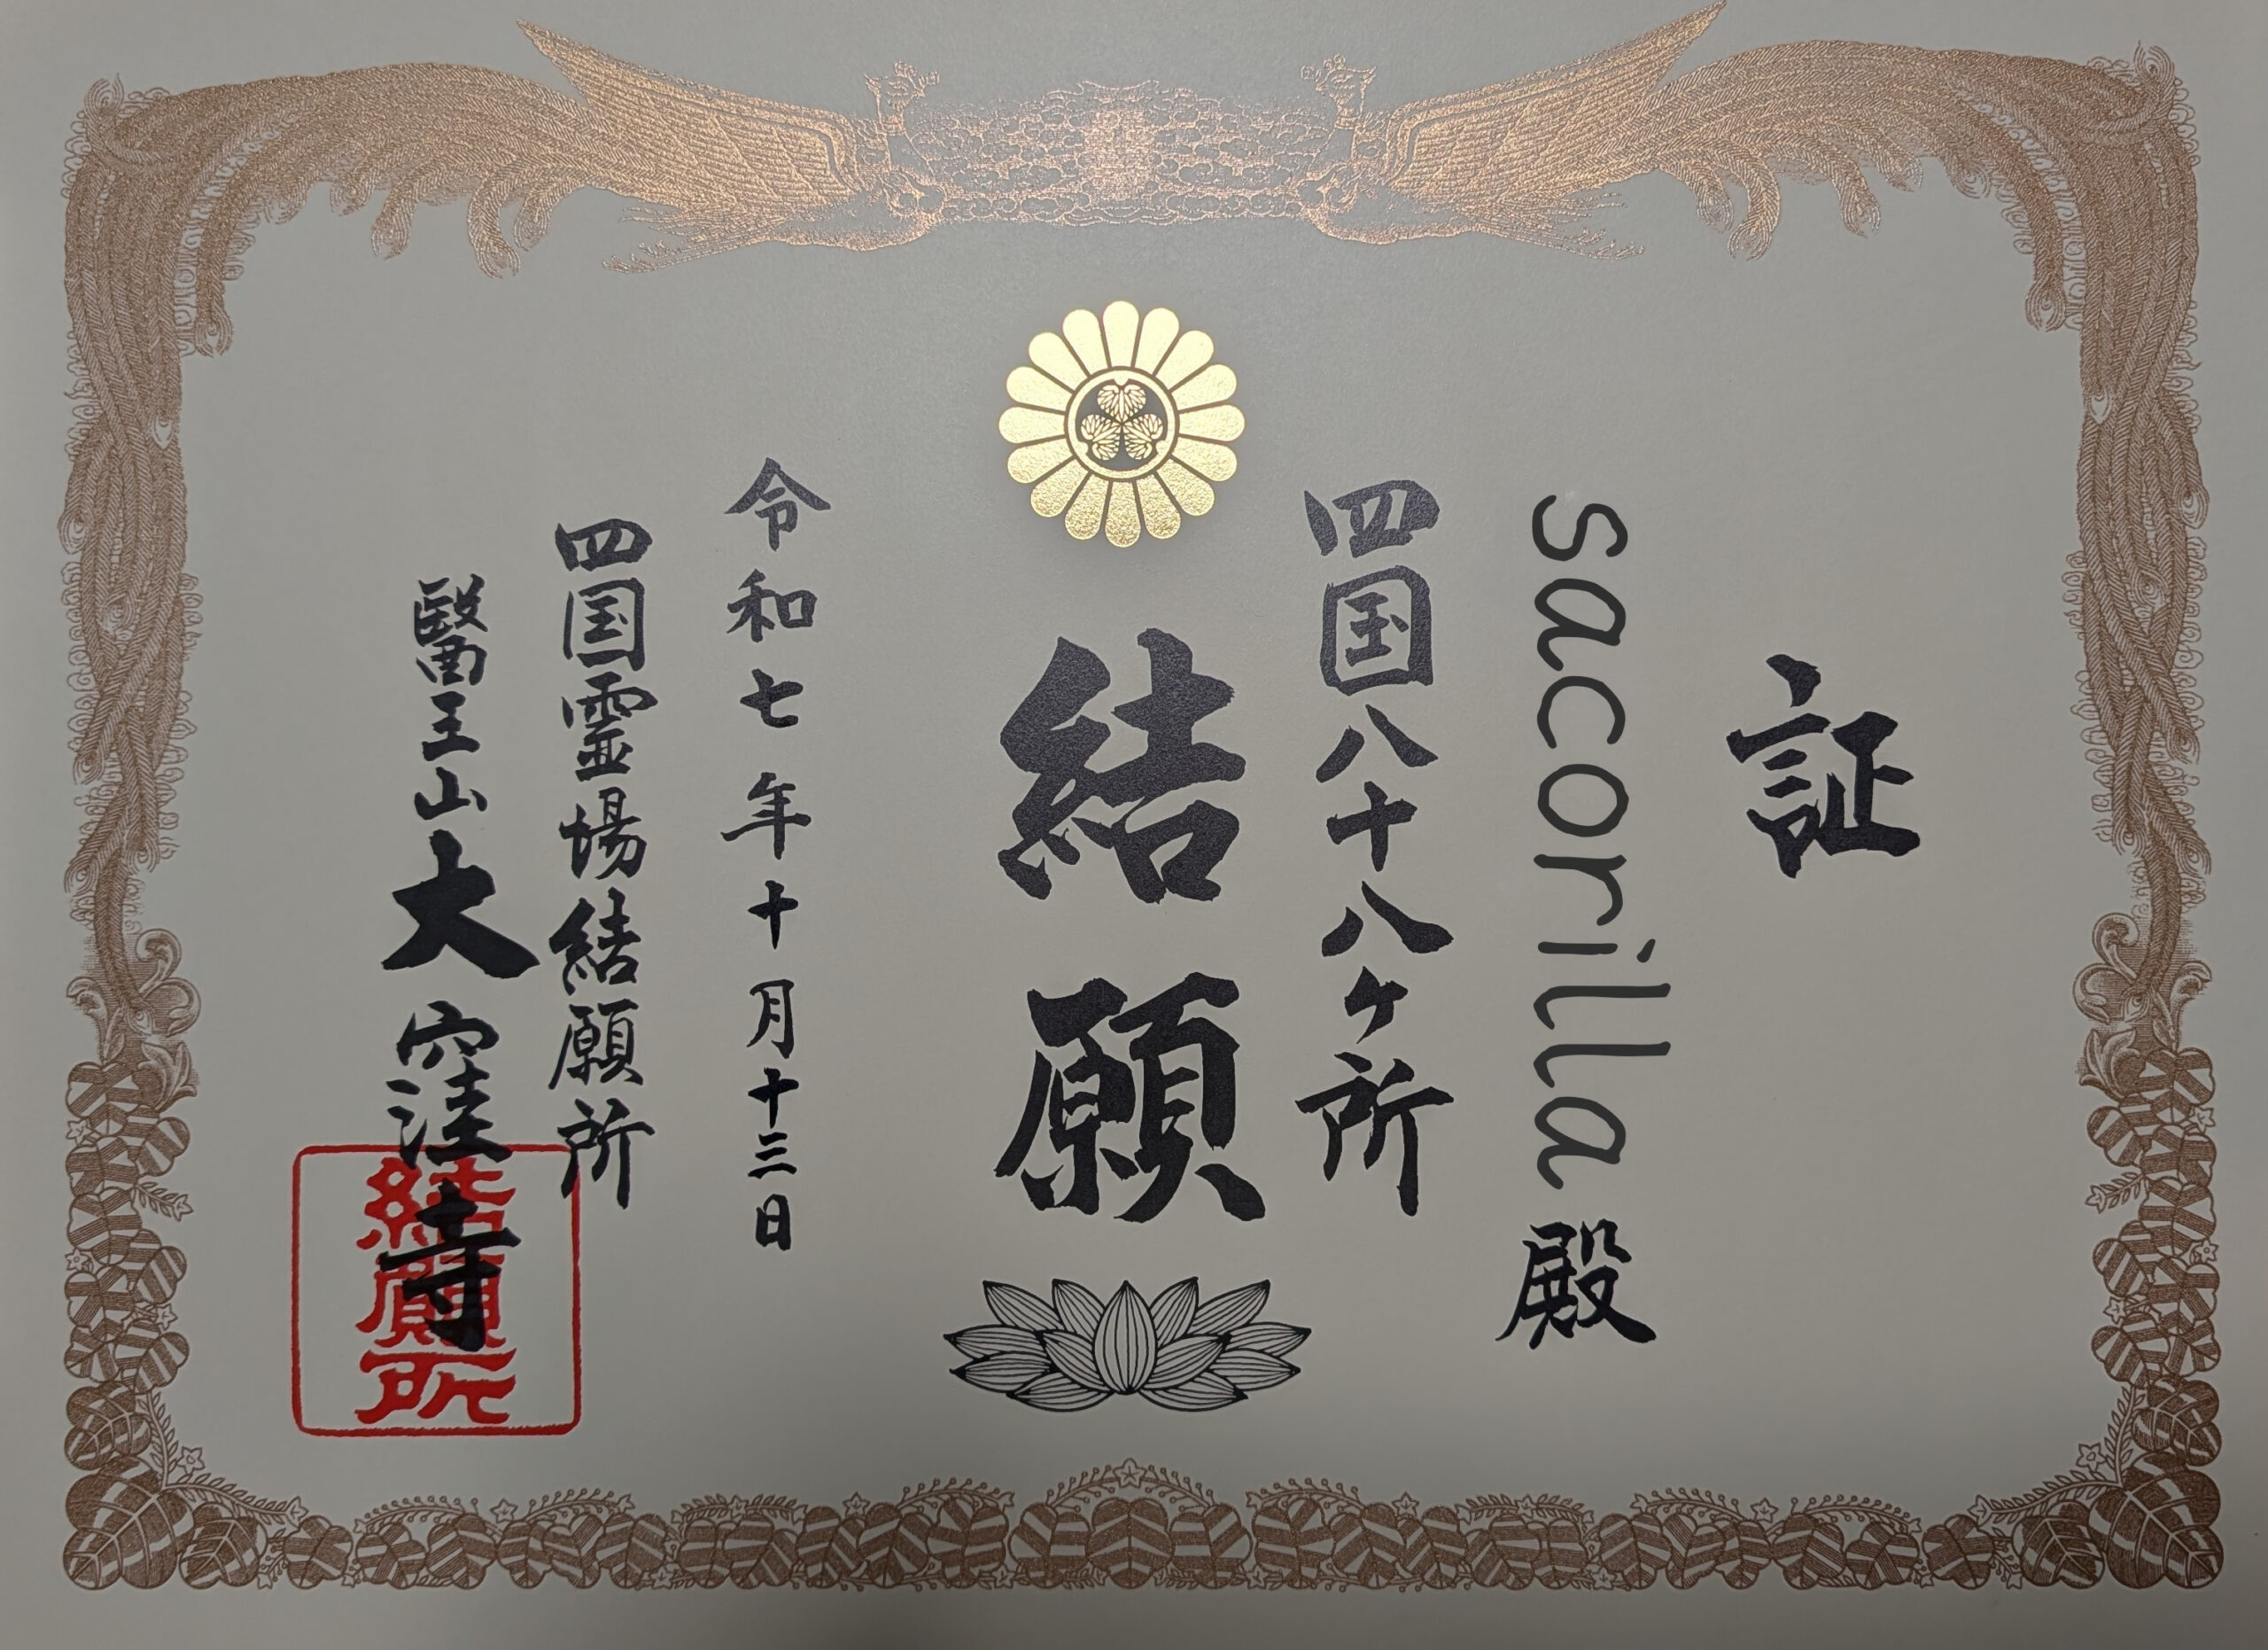 証
saccorilla殿
四国八十八ヶ所
結願
令和七年十月十三日
四国霊場結願所
醫王山大窪寺
結願所